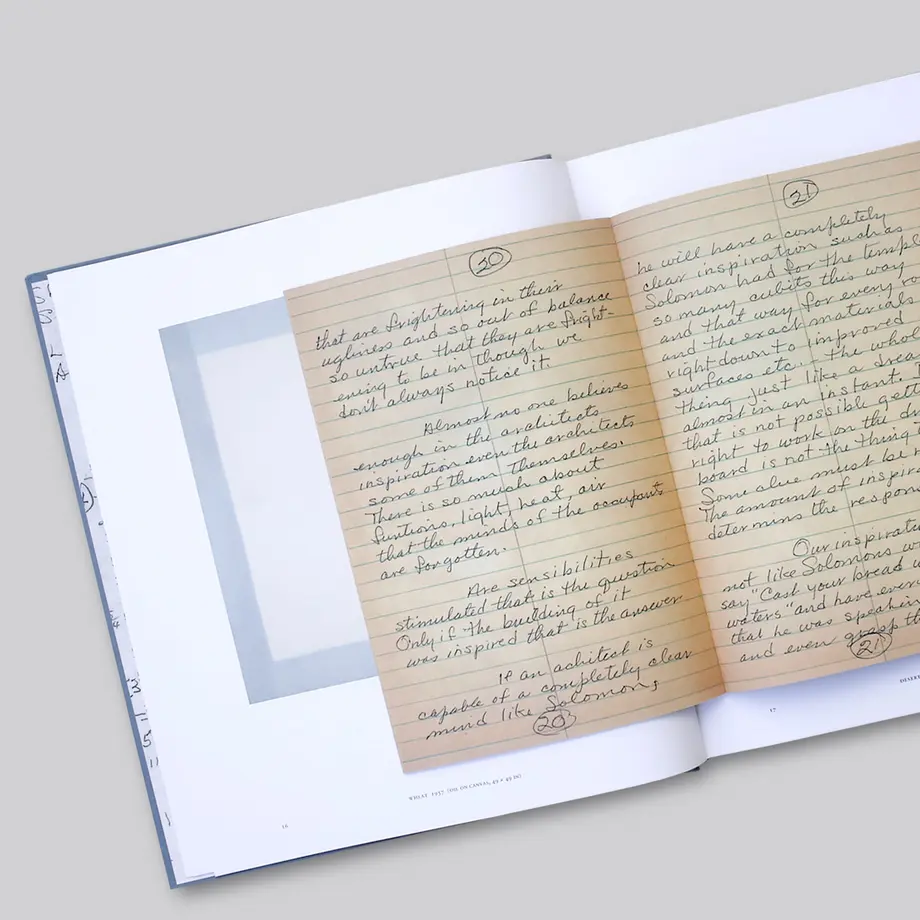 20
that are frightening in their
ugliness and so out of balance
so untrue that they are fright-
ening to be in though we
don't always notice it.
Almost no one believes
enough in the architects
inspiration even the architects
some of them themselves.
There is so much about
funtions, light, heat, air
that the minds of the occupant
are forgotten.
Are sensibilities
stimulated that is the question
Only if the building of it
was inspired that is the answer
If an achitect is
capable of a completely clear
mind like Solomons,
20
WHEAT 1957 (OIL ON CANVAS, 49 × 49 IN)
16
21
he will have a completely
clear inspiration such as
Solomon had for the templ
so many cubits this way
and that way for every ro
and the exact materials
right down to improved
surfaces etc. – the whol
thing just like a drea
almost in an instant.
that is not possible gett
right to work on the dr
board is not the thing
Some clue must be
The amount of inspir
determins the respon
Our inspirati
not like Solomons w
say "Cast your bread u
waters" and have even
that he was speakin
and even grasp th
21
17
DESER